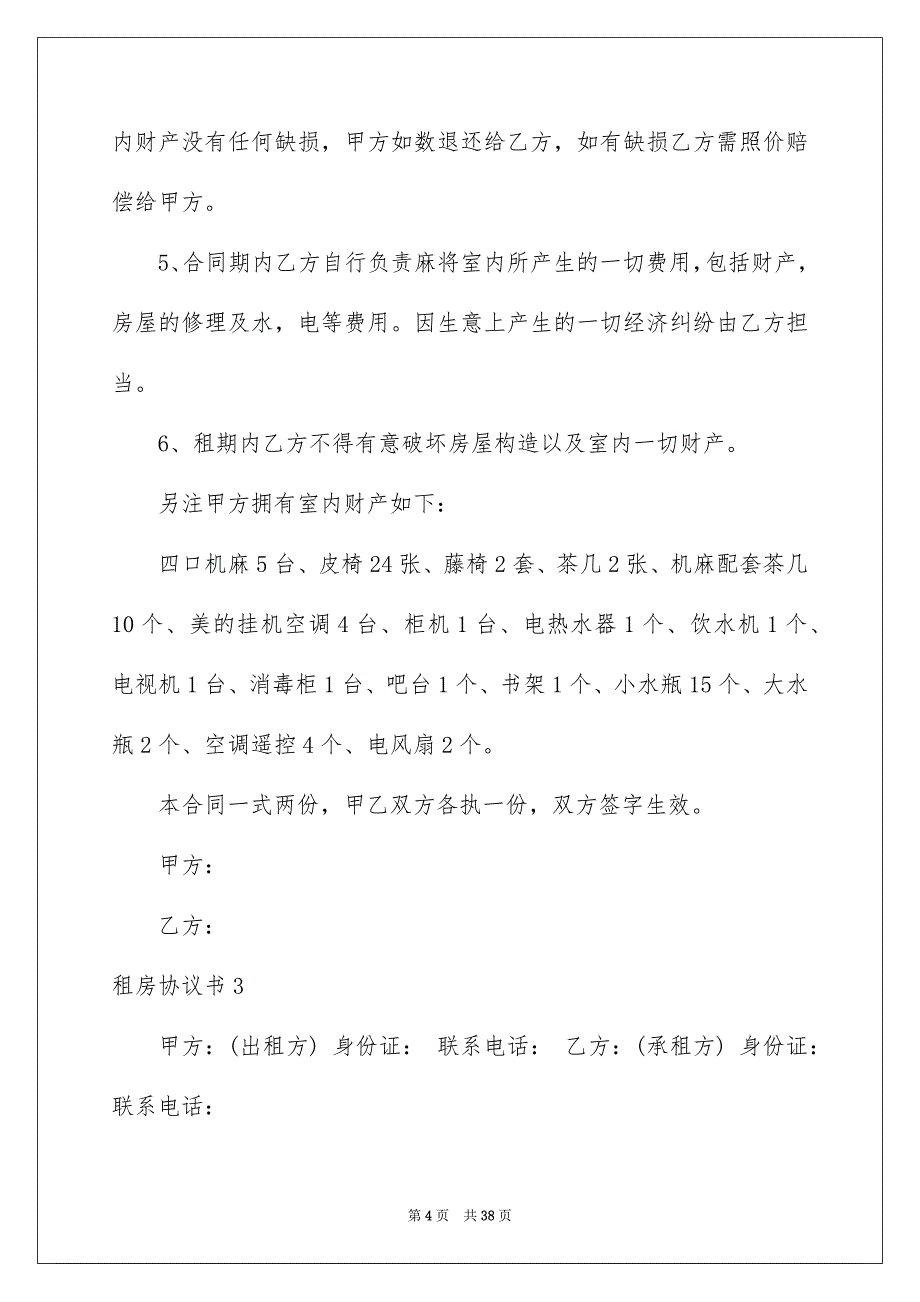 内财产没有任何缺损，甲方如数退还给乙方，如有缺损乙方需照价赔
偿给甲方。
5、合同期内乙方自行负责麻将室内所产生的一切费用,包括财产，
房屋的修理及水，电等费用。因生意上产生的一切经济纠纷由乙方担
当。
6、租期内乙方不得有意破坏房屋构造以及室内一切财产。
另注甲方拥有室内财产如下：
四口机麻 5 台、皮椅 24 张、藤椅 2 套、茶几 2 张、机麻配套茶几
10 个、美的挂机空调 4 台、柜机 1 台、电热水器 1 个、饮水机 1 个、
电视机 1 台、消毒柜 1 台、吧台 1 个、书架 1 个、小水瓶 15 个、大水
瓶 2 个、空调遥控 4 个、电风扇 2 个。
本合同一式两份，甲乙双方各执一份，双方签字生效。
甲方：
乙方：
租房协议书 3
甲方：(出租方) 身份证： 联系电话： 乙方：(承租方) 身份证：
联系电话：
第 4 页 共 38 页